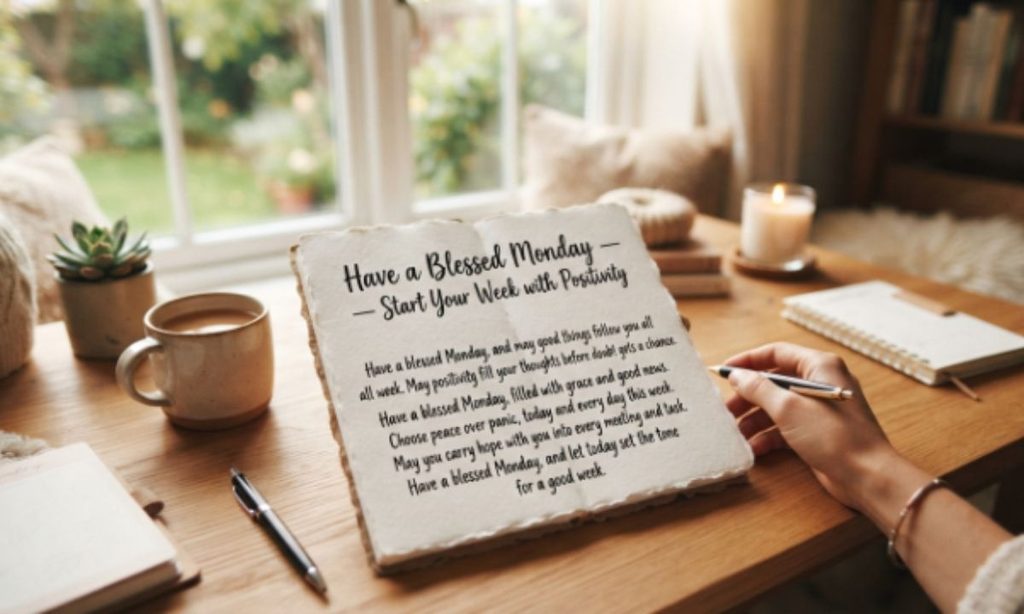 Have a Blessed Monday —
— Start Your Week with Positivity
Have a blessed Monday, and may good things follow you all
all week. May positivity fill your thoughts before doubt gets a chance.
Have a blessed Monday, filled with grace and good news.
Choose peace over panic, today and every day this week.
May you carry hope with you into every meeting and task.
Have a blessed Monday, and let today set the tone
for a good week.